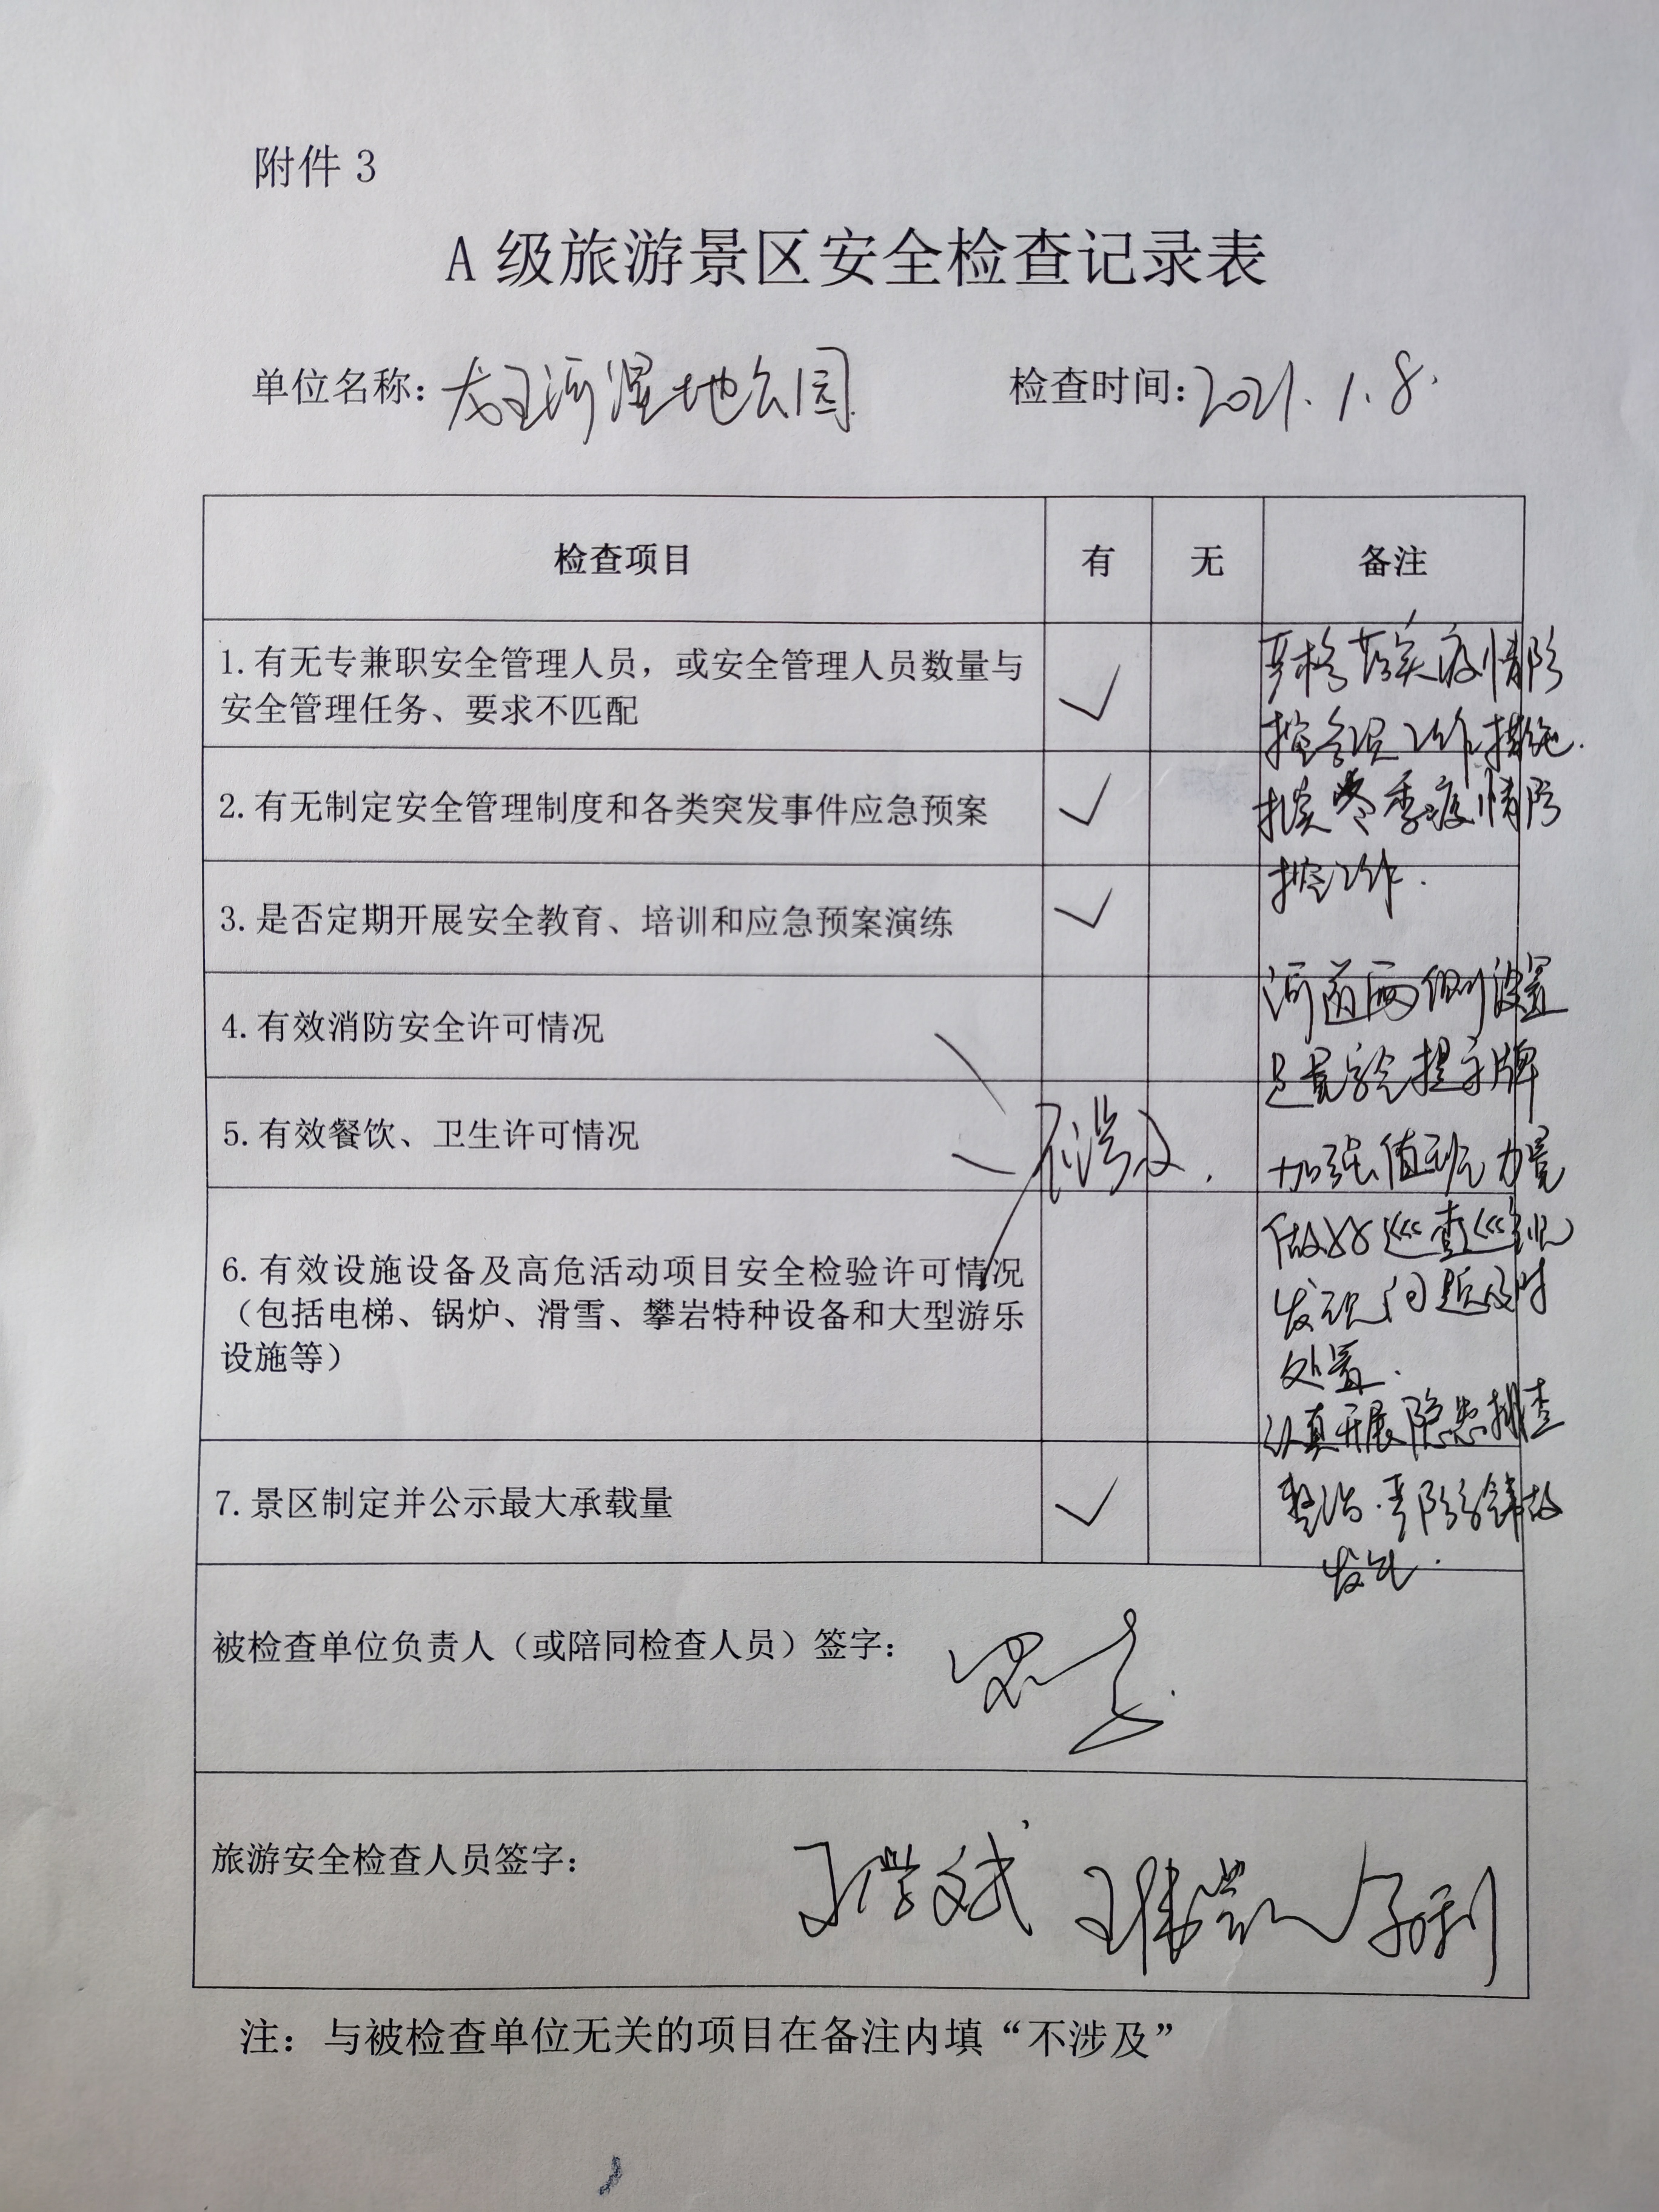 附件 3
A 级旅游景区安全检查记录表
单位名称：龙王河湿地公园 检查时间：2021.1.8.
检查项目 有 无 备注
1. 有无专兼职安全管理人员，或安全管理人员数量与
安全管理任务、要求不匹配
✓
2. 有无制定安全管理制度和各类突发事件应急预案
✓
3. 是否定期开展安全教育、培训和应急预案演练
✓
4. 有效消防安全许可情况
5. 有效餐饮、卫生许可情况
不涉及.
6. 有效设施设备及高危活动项目安全检验许可情况
（包括电梯、锅炉、滑雪、攀岩特种设备和大型游乐
设施等）
7. 景区制定并公示最大承载量
✓
严格落实疫情防
控各项工作措施.
抓实冬季疫情防
控工作.
河道两侧设置
足量安全提示牌
加强值班力量
做好巡查巡视
发现问题及时
处置.
认真开展隐患排查
整治.严防事故
发生.
被检查单位负责人（或陪同检查人员）签字：
旅游安全检查人员签字：
注：与被检查单位无关的项目在备注内填“不涉及”